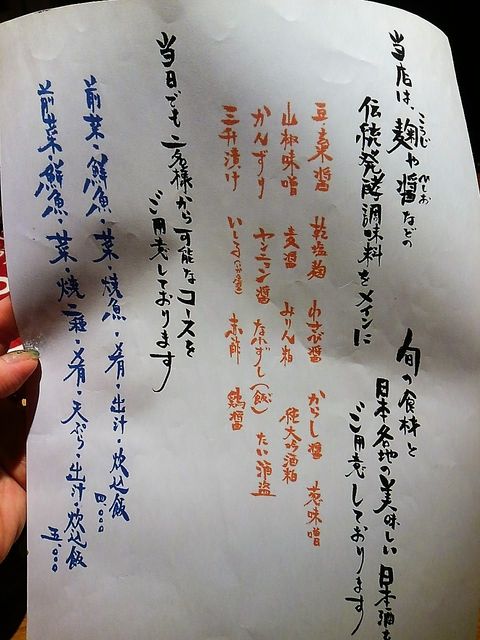 当店は、麹や醬などの
こうじ
ひしお
伝統発酵調味料をメインに
旬の食材と
日本各地の美味しい日本酒を
ご用意しております
豆棗醬 乾塩麹 わさび醬 からし醬 葱味噌
山椒味噌 麦醬 みりん粕 純大吟酒粕
かんずり ヤンニョン醬 なれずし(飯) たい酒盗
三升漬け いしる(いか魚醬) 赤酢 鶏醬
当日でも二名様から可能なコースを
ご用意しております
前菜・鮮魚・菜・焼魚・肴・出汁・炊込飯
四、〇〇〇
前菜・鮮魚・菜・焼二種・肴・天ぷら・出汁・炊込飯
五、〇〇〇